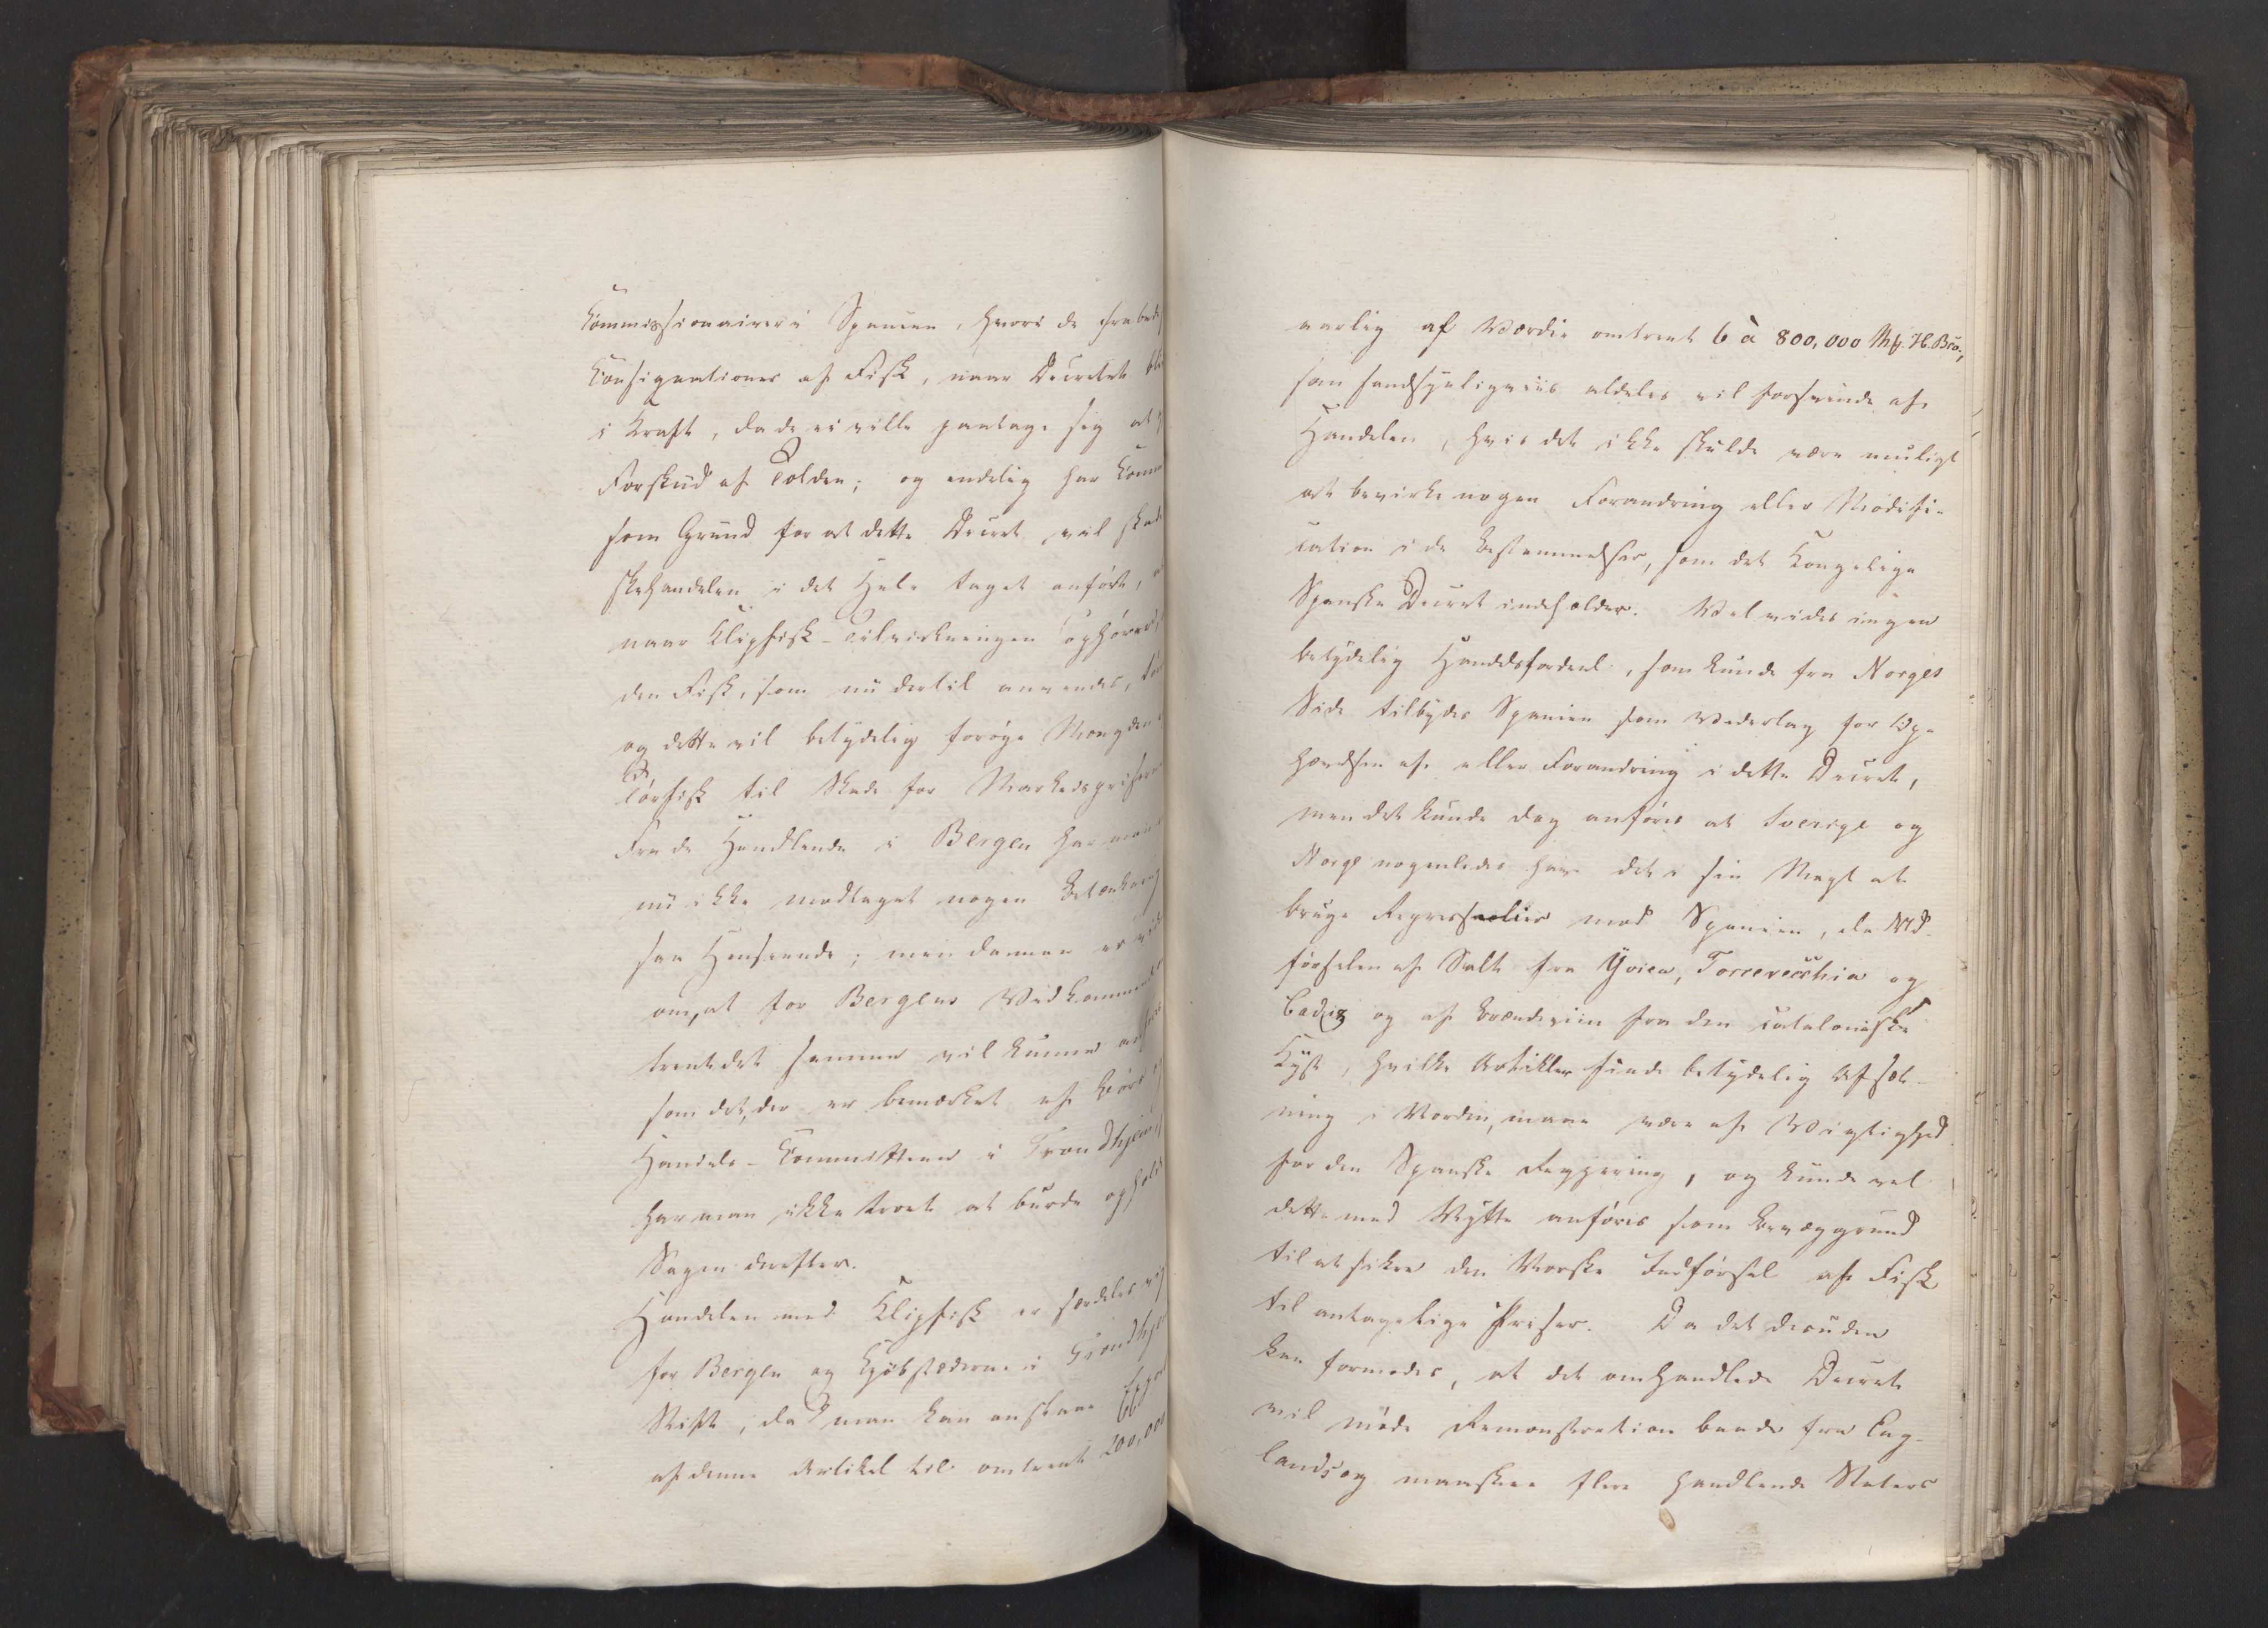 Commissionairer i Spanien, hvori de frabede
Consignationer af Fisk, naar Decretet bli
i Kraft, da de ei ville paatage sig at
Forskud af Tolden; og endelig har Comm
som Grund for at dette Decret vil skade
skehandelen i det Hele taget anført,
naar Klipfisk-Tilvirkningen ophører,
den Fisk, som nu dertil anvendes, tør
og dette vil betydelig forøge Mængden
Tørfisk til Skade for Markedspriserne
Fra de Handlende i Bergen har man
nu ikke modtaget nogen Betænkning
saa Henseende; men dannen er
om, at for Bergens Vedkommende
trent det samme vil kunne anføres
som det, der er bemærket af Børs
Handels-Committeen i Trondhjem,
har man ikke troet at burde opholde
Sagen derefter.
Handelen med Klipfisk er særdeles vig
for Bergen og Kjøbstæderne i Trondhjem
Stift, da man kan anslaae Export
af denne Artikel til omtrent 200,000
aarlig af Værdie omtrent 6 à 800,000 Mk. H. Bco.,
som sandsynligviis aldeles vil forsvinde af
Handelen, hvis det ikke skulde være muligt
at bevirke nogen Forandring eller Modifi-
cation i de Bestemmelser, som det Kongelige
Spanske Decret indeholder. Vel vides ingen
betydelig Handelsfordeel, som kunde fra Norges
Side tilbydes Spanien som Vederlag for Op-
hævelsen af eller Forandring i dette Decret,
men det kunde dog anføres at Sverige og
Norge nogenledes have det i sin Magt at
bruge Repressalier mod Spanien, da Ud-
førselen af Salt fra Yvica, Torrevecchia og
Cadiz og af Brændeviin fra den cataloniske
Kyst, hvilke Artikler finde betydelig Afsæt-
ning i Norden, maae være af Vigtighed
for den Spanske Regjering, og kunde vel
dette med Nytte anføres som Bevæggrund
til at sikre den Norske Indførsel af Fisk
til antagelige Priser. Da det desuden
kan formodes, at det omhandlede Decret
vil møde Remonstration baade fra Eng-
lands og maaskee flere handlende Staters